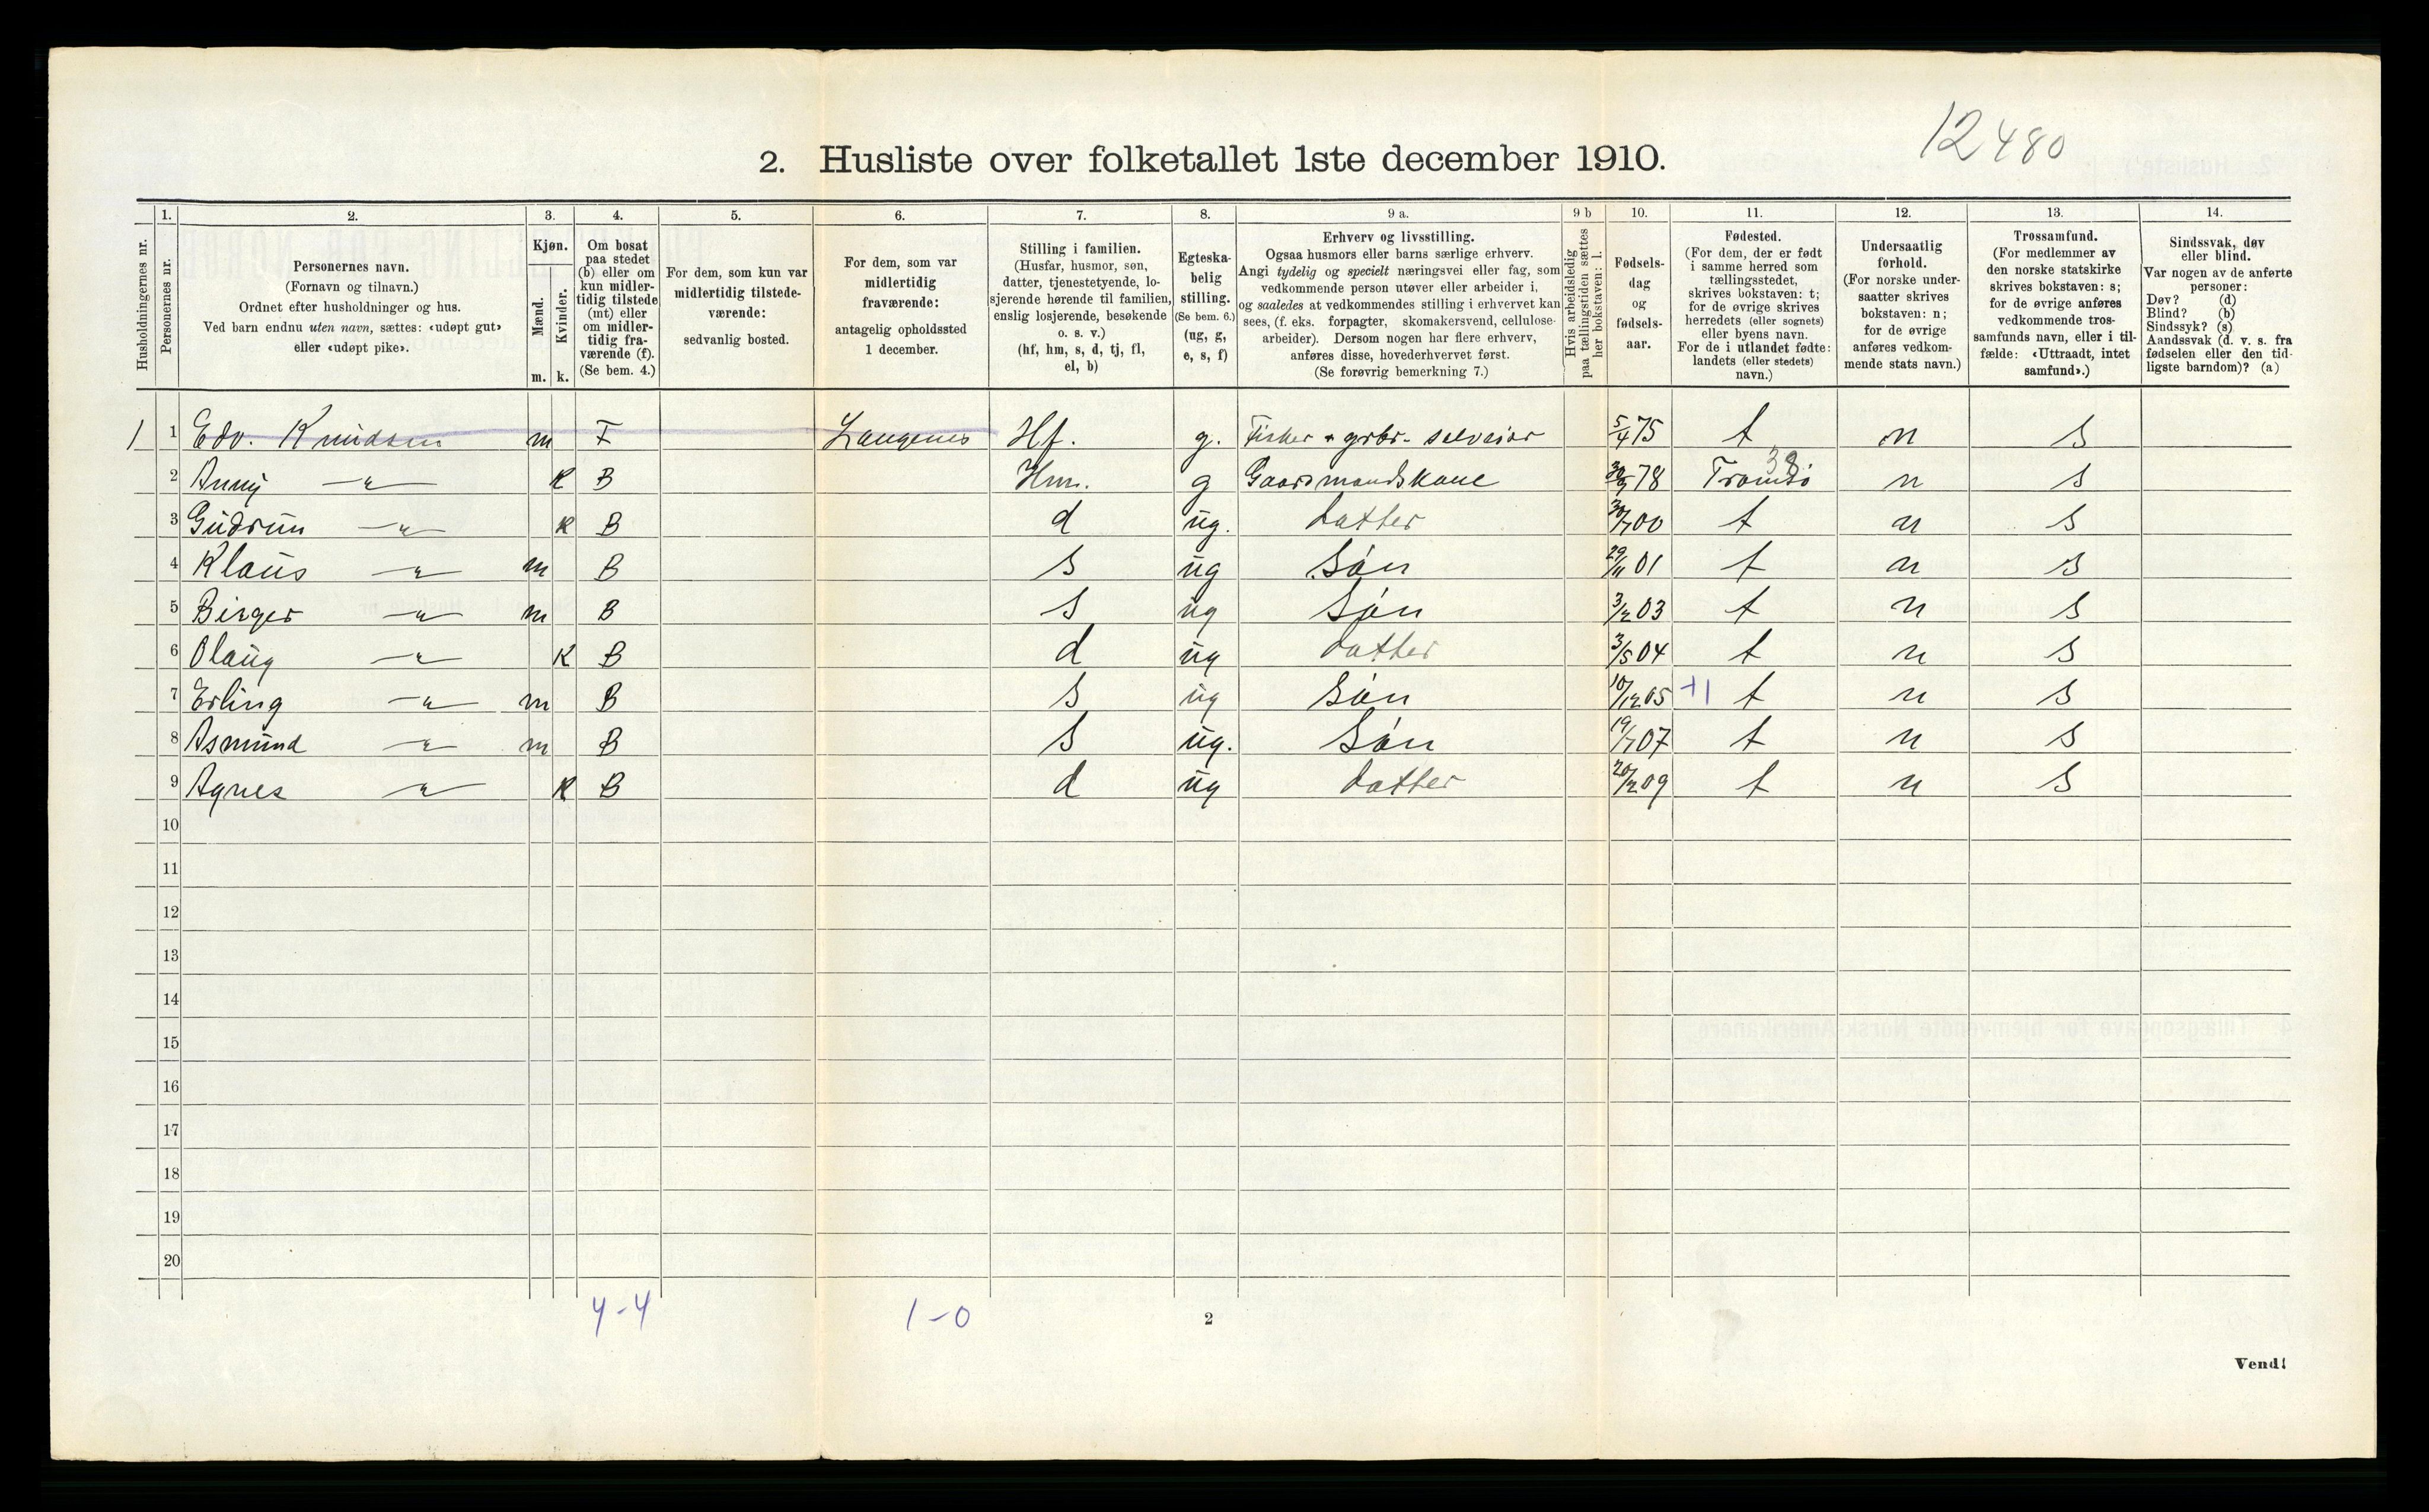 12480
2. Husliste over folketallet 1ste december 1910.
Husholdningernes nr.
1. Personernes nr.
2. Personernes navn.
(Fornavn og tilnavn.)
Ordnet efter husholdninger og hus.
Ved barn endnu uten navn, sættes: «udøpt gut»
eller «udøpt pike».
3. Kjøn.
Mænd. m.
Kvinder. k.
4. Om bosat
paa stedet
(b) eller om
kun midler-
tidig tilstede
(mt) eller
om midler-
tidig fra-
værende (f).
(Se bem. 4.)
5. For dem, som kun var
midlertidig tilstede-
værende:
sedvanlig bosted.
6. For dem, som var
midlertidig
fraværende:
antagelig opholdssted
1 december.
7. Stilling i familien.
(Husfar, husmor, søn,
datter, tjenestetyende, lo-
sjerende hørende til familien,
enslig losjerende, besøkende
o. s. v.)
(hf, hm, s, d, tj, fl,
el, b)
8. Egteska-
belig
stilling.
(Se bem. 6.)
(ug, g,
e, s, f)
9 a. Erhverv og livsstilling.
Ogsaa husmors eller barns særlige erhverv.
Angi tydelig og specielt næringsvei eller fag, som
vedkommende person utøver eller arbeider i,
og saaledes at vedkommendes stilling i erhvervet kan
sees, (f. eks. forpagter, skomakersvend, cellulose-
arbeider). Dersom nogen har flere erhverv,
anføres disse, hovederhvervet først.
(Se forøvrig bemerkning 7.)
9 b Hvis arbeidsledig
paa tællingstiden sættes
her bokstaven: l.
10. Fødsels-
dag
og
fødsels-
aar.
11. Fødested.
(For dem, der er født
i samme herred som
tællingsstedet,
skrives bokstaven: t;
for de øvrige skrives
herredets (eller sognets)
eller byens navn.
For de i utlandet fødte:
landets (eller stedets)
navn.)
12. Undersaatlig
forhold.
(For norske under-
saatter skrives
bokstaven: n;
for de øvrige
anføres vedkom-
mende stats navn.)
13. Trossamfund.
(For medlemmer av
den norske statskirke
skrives bokstaven: s;
for de øvrige anføres
vedkommende tros-
samfunds navn, eller i til-
fælde: «Uttraadt, intet
samfund».)
14. Sindssvak, døv
eller blind.
Var nogen av de anførte
personer:
Døv? (d)
Blind? (b)
Sindssyk? (s)
Aandssvak (d. v. s. fra
fødselen eller den tid-
ligste barndom)? (a)
1 1 Edv. Knudsen m F Langenes Hf. g. Fisker + grbr. selveier 5/4 75 t n s
2 Anny —"— K B Hm. g Gaardmandskone 78 Tromsö 38 n s
3 Gudrun —"— K B d ug. datter 30/7 00 t n s
4 Klaus —"— m B s ug Sön 29/11 01 t n s
5 Birger —"— m B s ug Sön 3/2 03 t n s
6 Olaug —"— K B d ug datter 3/5 04 t n s
7 Erling —"— m B s ug Sön 10/12 05 +1 t n s
8 Asmund —"— m B s ug. Sön 19/7 07 t n s
9 Agnes —"— K B d ug datter 20/2 09 t n s
10
11
12
13
14
15
16
17
18
19
20
4-4 1-0
2
Vend!